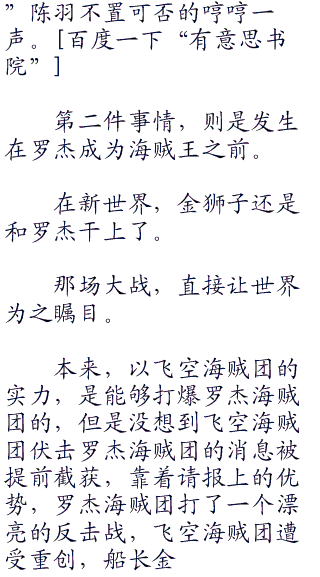 ”陈羽不置可否的哼哼一
声。[百度一下“有意思书
院”]
第二件事情，则是发生
在罗杰成为海贼王之前。
在新世界，金狮子还是
和罗杰干上了。
那场大战，直接让世界
为之瞩目。
本来，以飞空海贼团的
实力，是能够打爆罗杰海贼
团的，但是没想到飞空海贼
团伏击罗杰海贼团的消息被
提前截获，靠着请报上的优
势，罗杰海贼团打了一个漂
亮的反击战，飞空海贼团遭
受重创，船长金